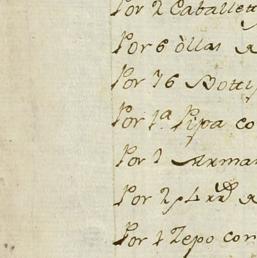 Por 2 Caballet
Por 6 òllas
Por 76 Botti
Por 1.ª Pipa co
Por 1 Arma
Por 2
Por 1 Zepo con